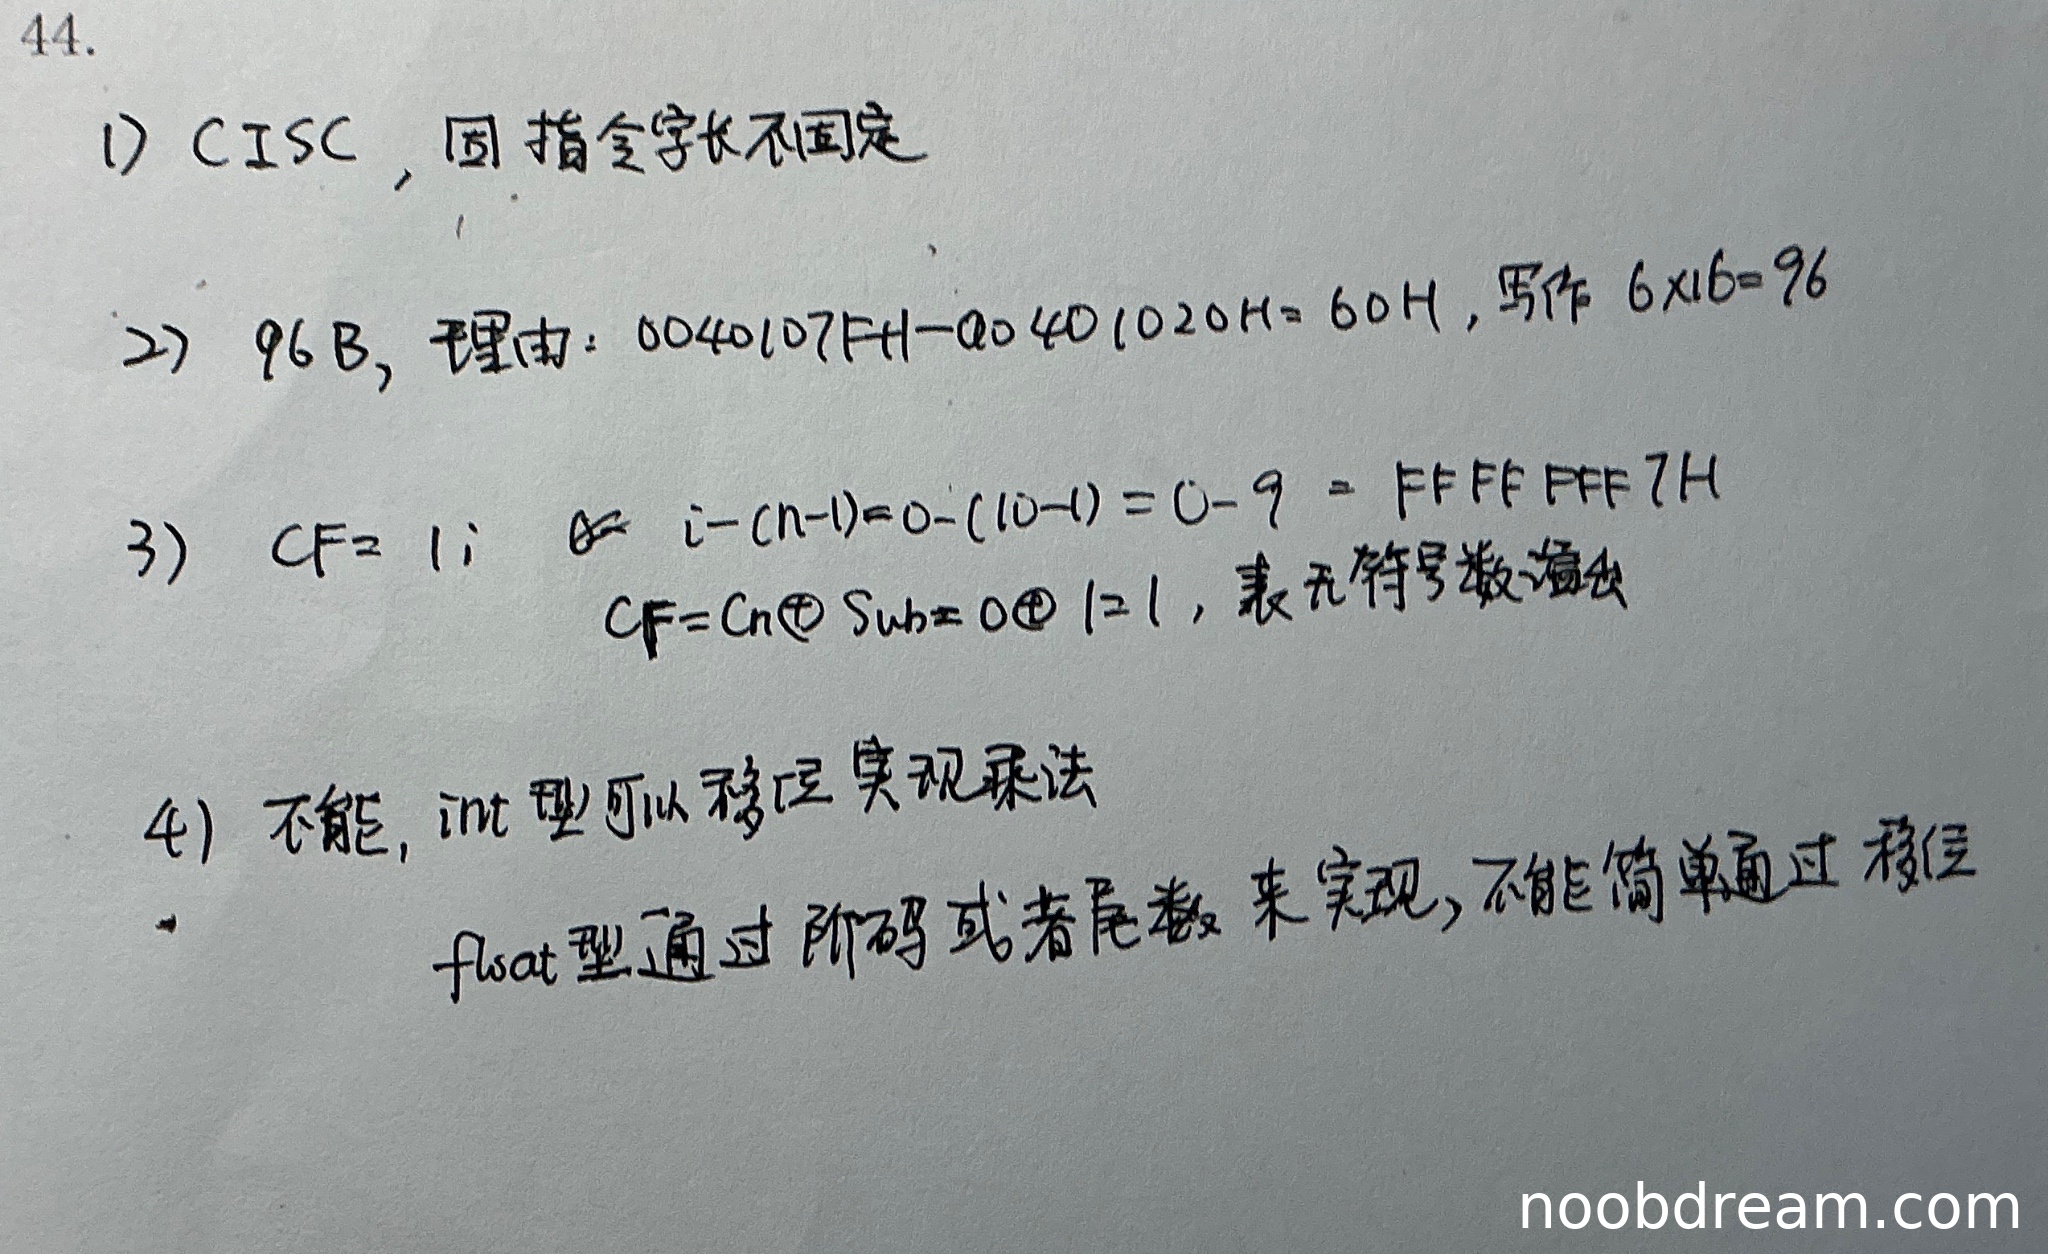 44.
1) CISC , 因指令字长不固定
2) 96B, 理由: 0040107FH-00401020H=60H, 写作 6×16=96
3) CF=1; i-(n-1)=0-(10-1)=0-9 = FFFF FFF7H
CF=Cn⊕Sub=0⊕1=1, 表无符号数溢出
4) 不能, int型可以移位实现乘法
float型通过阶码或者尾数来实现, 不能简单通过移位
noobdream.com